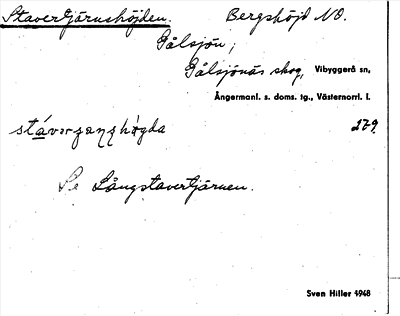 Stavertjärnshöjden. Bergshöjd NO.
Gålsjön;
Gålsjönäs skog, Vibyggerå sn,
Ångermanl. s. doms. tg., Västernorrl. l.
279
Se Långstavertjärnen.
Sven Hiller 1948